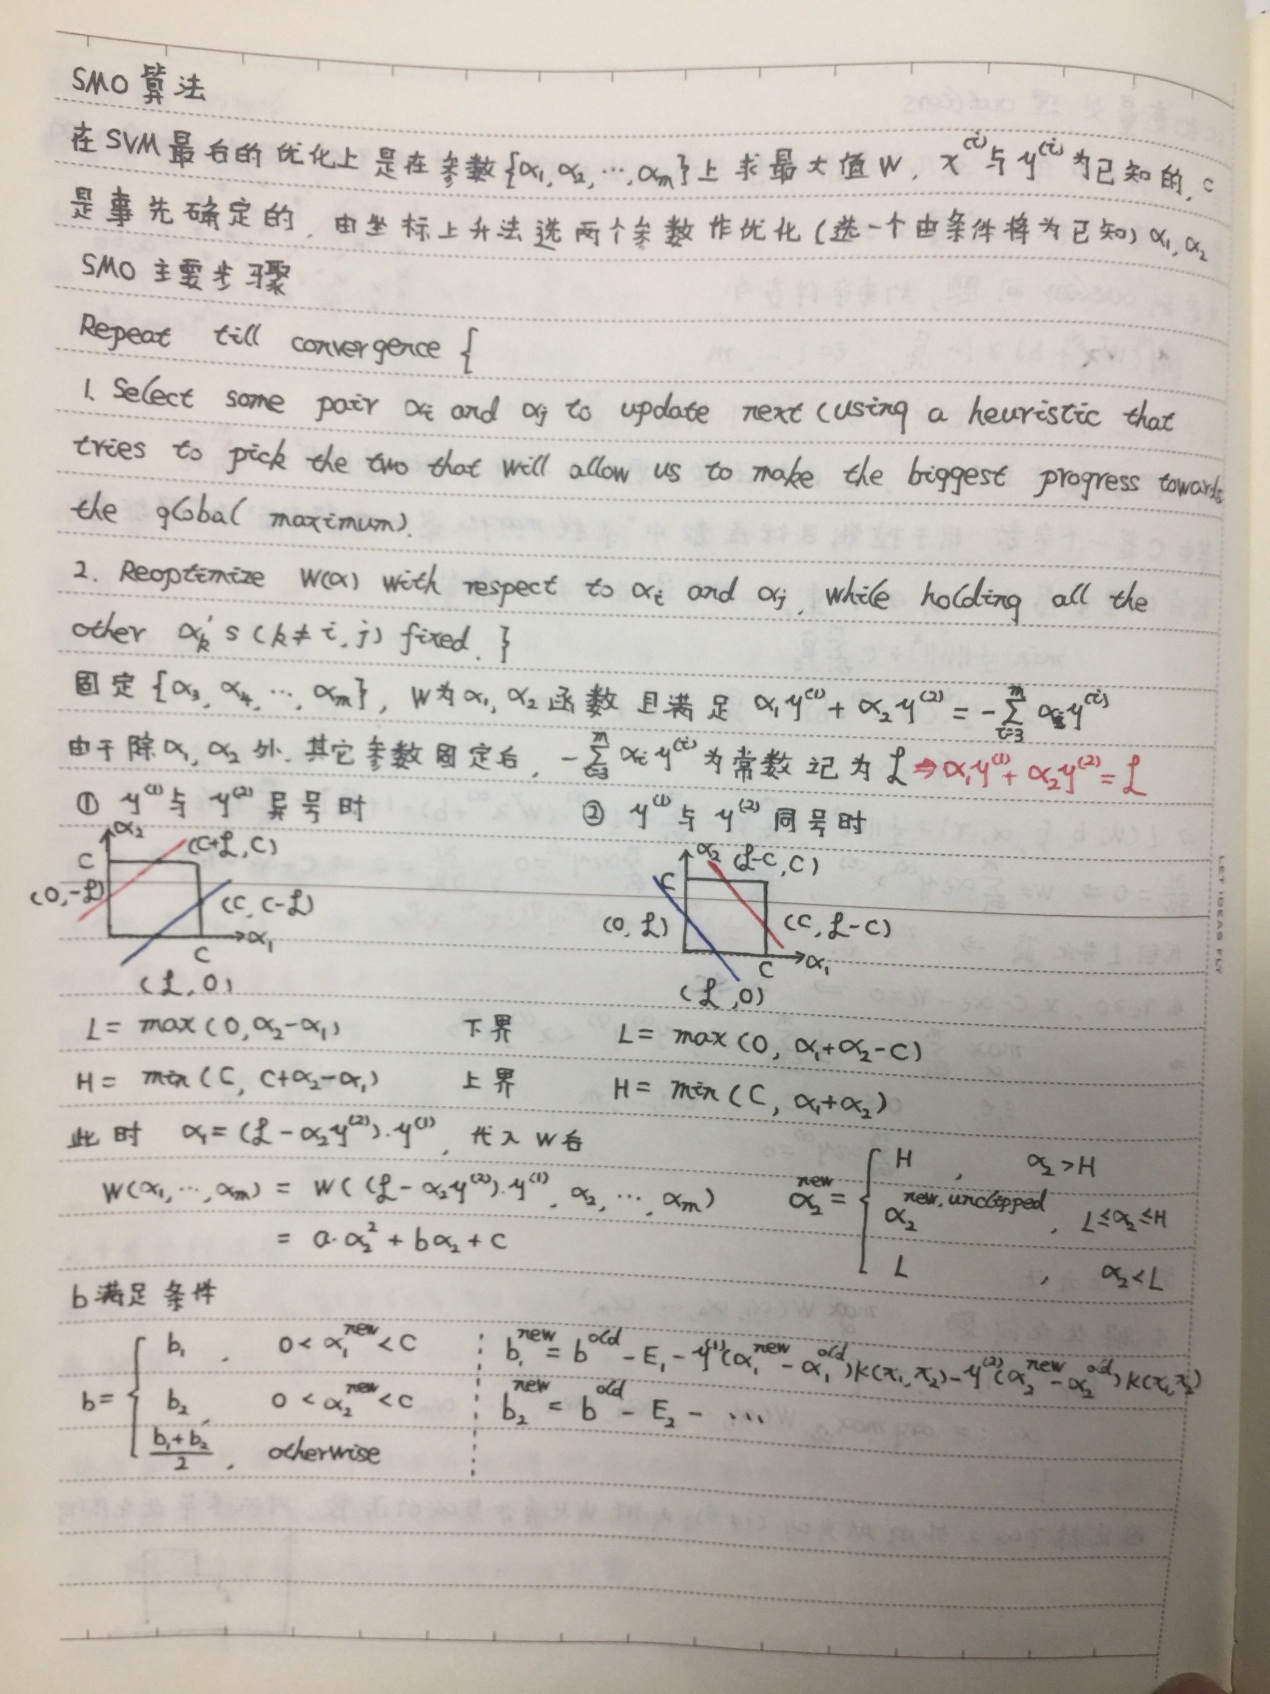 SMO 算法
在SVM最后的优化上是在参数{α₁,α₂,…,αₘ}上求最大值W, x⁽ⁱ⁾与y⁽ⁱ⁾为已知的, C
是事先确定的, 由坐标上升法选两个参数作优化(选一个由条件将为已知) α₁,α₂
SMO 主要步骤
Repeat till convergence {
1. Select some pair αᵢ and αⱼ to update next (using a heuristic that
tries to pick the two that will allow us to make the biggest progress towards
the global maximum).
2. Reoptimize W(α) with respect to αᵢ and αⱼ, while holding all the
other αₖ's (k≠i,j) fixed. }
固定{α₃, α₄, …, αₘ}, W为α₁,α₂函数 且满足 α₁y⁽¹⁾ + α₂y⁽²⁾ = -∑ᵢ₌₃ᵐ αᵢy⁽ⁱ⁾
由于除α₁,α₂外,其它参数固定后, -∑ᵢ₌₃ᵐ αᵢy⁽ⁱ⁾为常数记为ℒ⇒α₁y⁽¹⁾+α₂y⁽²⁾=ℒ
① y⁽¹⁾与y⁽²⁾异号时 ② y⁽¹⁾与y⁽²⁾同号时
α₂ (C+ℒ,C) α₂ (ℒ-C,C)
C C
(0,-ℒ) (C,C-ℒ) (0,ℒ) (C,ℒ-C)
C α₁ C α₁
(ℒ,0) (ℒ,0)
L= max(0,α₂-α₁) 下界 L= max(0, α₁+α₂-C)
H= min(C, C+α₂-α₁) 上界 H= min(C, α₁+α₂)
此时 α₁=(ℒ-α₂y⁽²⁾)·y⁽¹⁾, 代入W后
W(α₁,…,αₘ) = W((ℒ-α₂y⁽²⁾)·y⁽¹⁾, α₂,…,αₘ)
= a·α₂²+bα₂+c
α₂ⁿᵉʷ = { H , α₂>H
α₂^{new,unclipped} , L≤α₂≤H
L , α₂<L
b满足条件
b= { b₁ , 0<α₁ⁿᵉʷ<C
b₂ , 0<α₂ⁿᵉʷ<C
(b₁+b₂)/2 , otherwise
b₁ⁿᵉʷ = bᵒˡᵈ - E₁ - y⁽¹⁾(α₁ⁿᵉʷ-α₁ᵒˡᵈ)k(x₁,x₂)-y⁽²⁾(α₂ⁿᵉʷ-α₂ᵒˡᵈ)k(x₁,x₂)
b₂ⁿᵉʷ = bᵒˡᵈ - E₂ - …
LET IDEAS FLY